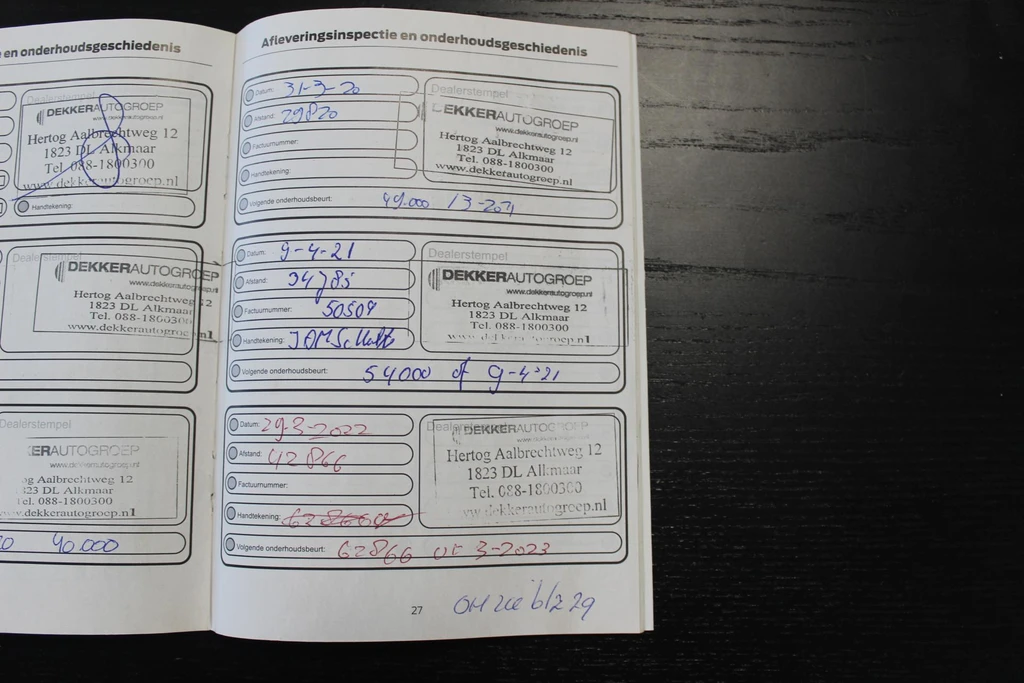 en onderhoudsgeschiedenis
Dealerstempel
DEKKERAUTOGROEP
Hertog Aalbrechtweg 12
1823 DL Alkmaar
Tel. 088-1800300
www.dekkerautogroep.nl
Handtekening:
DEKKERAUTOGROEP
www.dekkerautogroep.nl
Hertog Aalbrechtweg 12
1823 DL Alkmaar
Tel. 088-1800300
www.dekkerautogroep.nl
Dealerstempel
ERAUTOGROEP
www.dekkerautogroep.nl
og Aalbrechtweg 12
823 DL Alkmaar
Tel. 088-1800300
www.dekkerautogroep.nl
40.000
Afleveringsinspectie en onderhoudsgeschiedenis
Datum: 31-3-20
Afstand: 29820
Factuurnummer:
Handtekening:
Volgende onderhoudsbeurt: 49.000 / 3-2021
Dealerstempel
DEKKERAUTOGROEP
www.dekkerautogroep.nl
Hertog Aalbrechtweg 12
1823 DL Alkmaar
Tel. 088-1800300
www.dekkerautogroep.nl
Datum: 9-4-21
Afstand: 34785
Factuurnummer: 50509
Handtekening:
Volgende onderhoudsbeurt: 54000 of 9-4-21
Dealerstempel
DEKKERAUTOGROEP
www.dekkerautogroep.nl
Hertog Aalbrechtweg 12
1823 DL Alkmaar
Tel. 088-1800300
www.dekkerautogroep.nl
Datum: 29-3-2022
Afstand: 42866
Factuurnummer:
Handtekening:
Volgende onderhoudsbeurt: 62866 of 3-2023
Dealerstempel
DEKKERAUTOGROEP
Hertog Aalbrechtweg 12
1823 DL Alkmaar
Tel. 088-1800300
www.dekkerautogroep.nl
27
OH zie blz 29